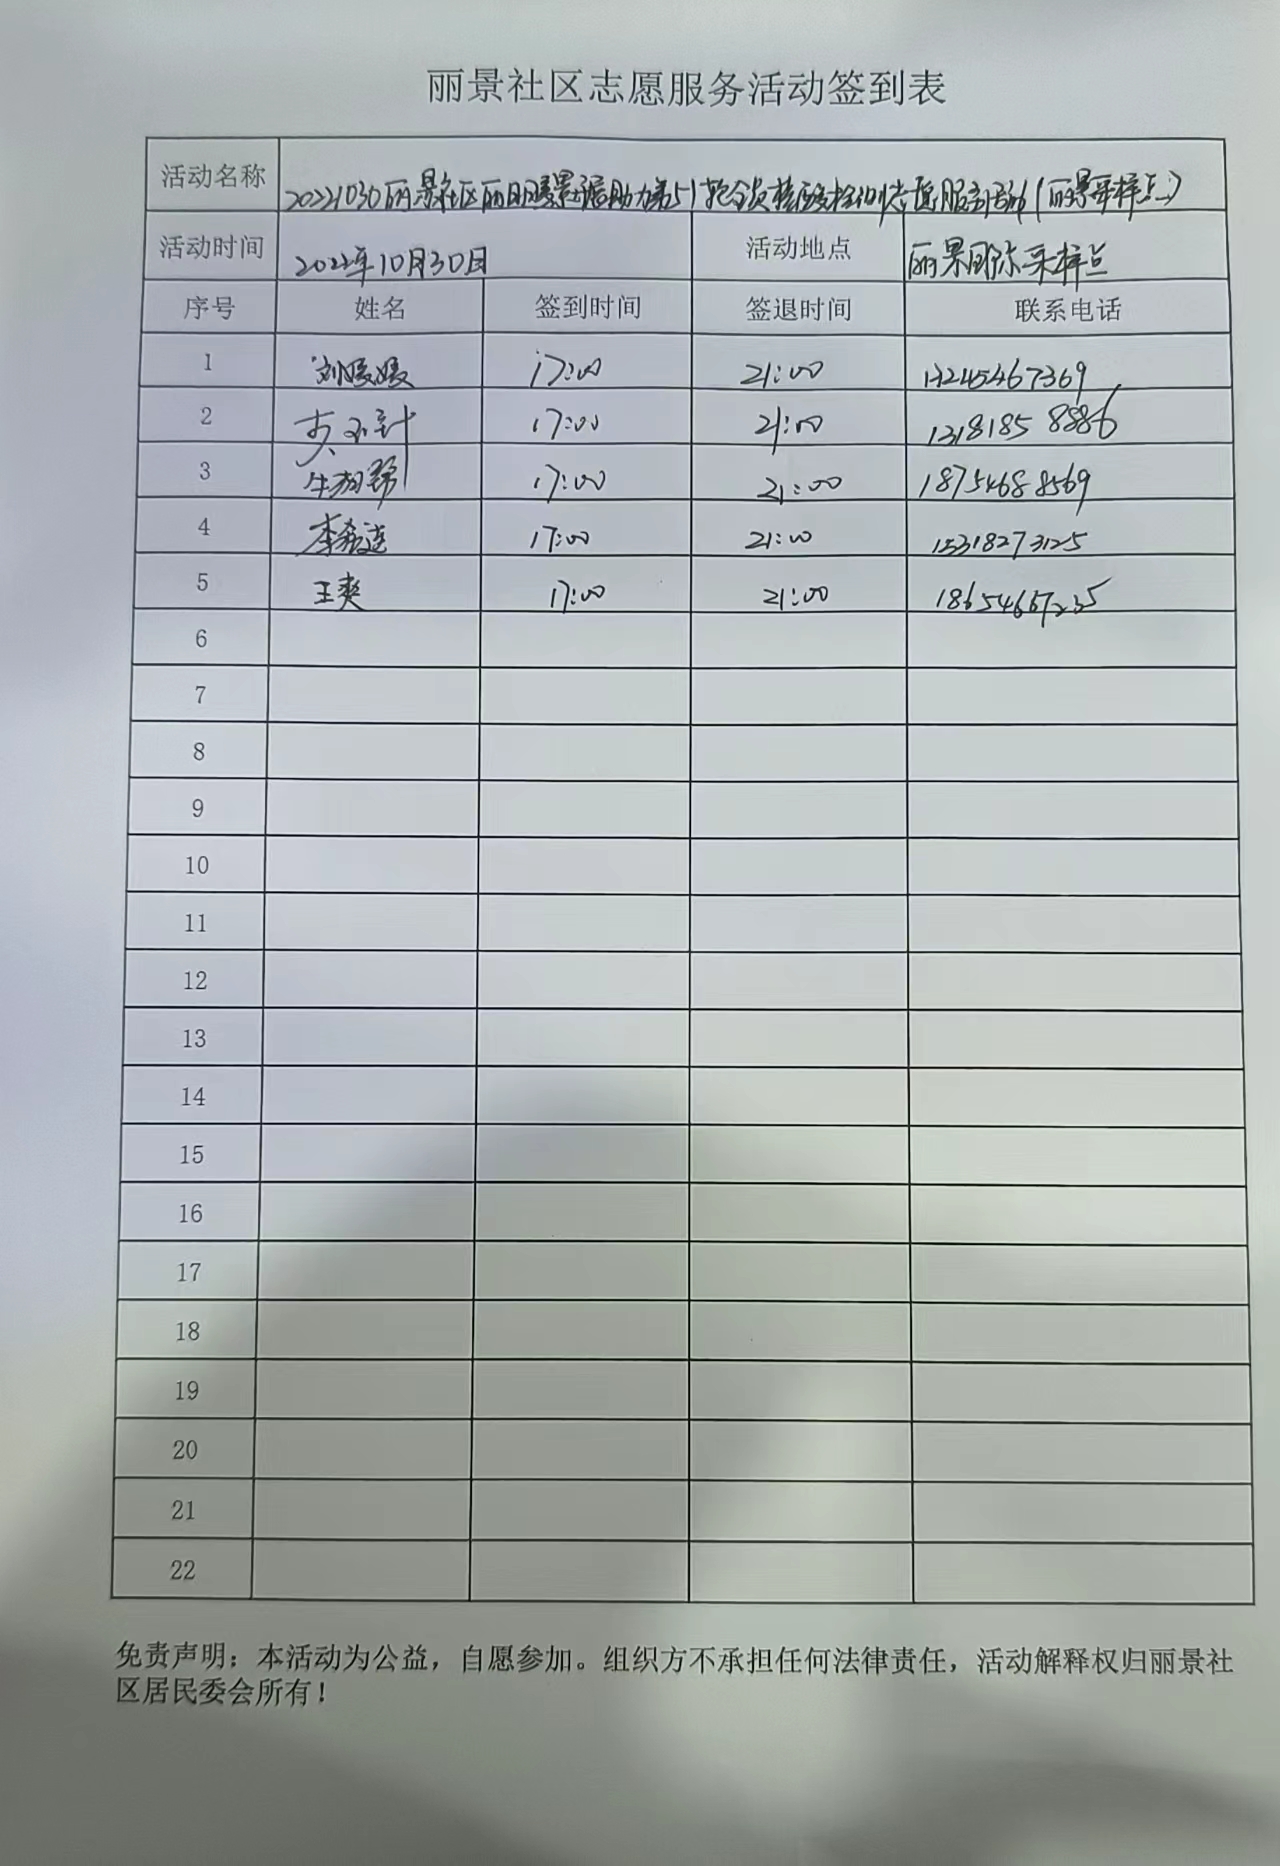 丽景社区志愿服务活动签到表
活动名称 20221030丽景社区丽明暖景志愿助力第51轮全员核酸检测志愿服务活动(丽景采样点二)
活动时间 2022年10月30日 活动地点 丽景国际采样点
序号 姓名 签到时间 签退时间 联系电话
1 刘媛媛 17:00 21:00 13245467369
2 17:00 21:00 13181858886
3 17:00 21:00 18754688569
4 李希莲 17:00 21:00 15318273125
5 王爽 17:00 21:00 18654667235
6
7
8
9
10
11
12
13
14
15
16
17
18
19
20
21
22
免责声明：本活动为公益，自愿参加。组织方不承担任何法律责任，活动解释权归丽景社
区居民委会所有！